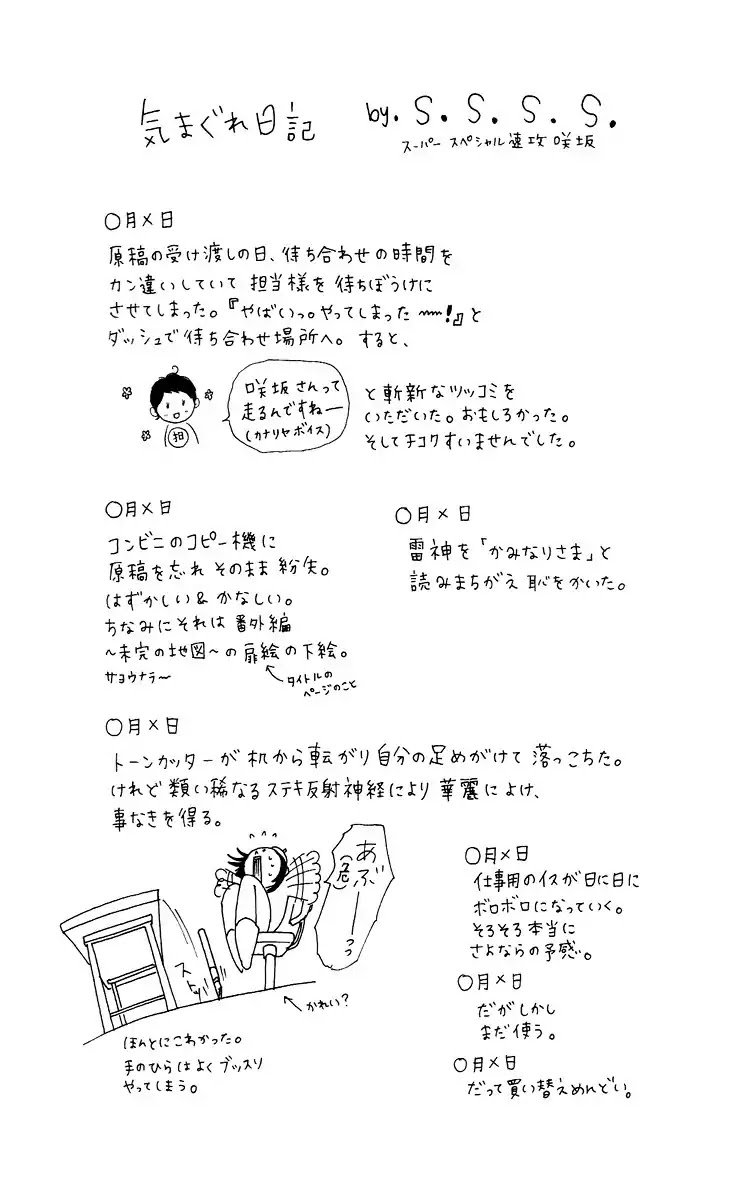 気まぐれ日記
by. S. S. S. S.
スーパー スペシャル 速攻 咲坂
〇月×日
原稿の受け渡しの日、待ち合わせの時間を
カン違いしていて 担当様を 待ちぼうけに
させてしまった。『やばいっ。やってしまった〰!』と
ダッシュで待ち合わせ場所へ。すると、
担
咲坂さんって
走るんですねー
(カナリヤボイス)
と斬新なツッコミを
いただいた。おもしろかった。
そしてチコクすいませんでした。
〇月×日
コンビニのコピー機に
原稿を忘れ そのまま 紛失。
はずかしい&かなしい。
ちなみにそれは 番外編
~未完の地図~の扉絵の下絵。
サヨウナラ~
タイトルの
ページのこと
〇月×日
雷神を「かみなりさま」と
読みまちがえ 恥をかいた。
〇月×日
トーンカッターが 机から転がり自分の足めがけて 落っこちた。
けれど 類い稀なるステキ反射神経により 華麗によけ、
事なきを得る。
あぶーーっっ
(危)
ストッ
かれい?
ほんとにこわかった。
手のひらはよく ブッスリ
やってしまう。
〇月×日
仕事用のイスが日に日に
ボロボロになっていく。
そろそろ本当に
さよならの予感。
〇月×日
だがしかし
まだ使う。
〇月×日
だって買い替えめんどい。